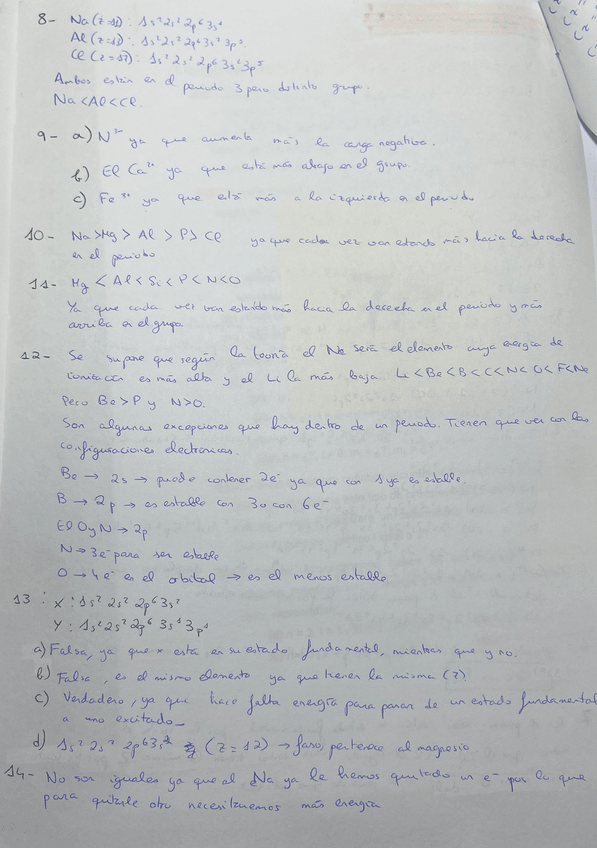 8- Na (z=11): 1s² 2s² 2p⁶ 3s¹
Al (z=13): 1s² 2s² 2p⁶ 3s² 3p¹
Cl (z=17): 1s² 2s² 2p⁶ 3s² 3p⁵
Ambos están en el periodo 3 pero distinto grupo.
Na < Al < Cl.
9- a) N³⁻ ya que aumenta más la carga negativa.
b) El Ca²⁺ ya que está más abajo en el grupo.
c) Fe ya que está más a la izquierda en el periodo
10- Na > Mg > Al > P > Cl ya que cada vez van estando más hacia la derecha
en el periodo
11- Mg < Al < Si < P < N < O
Ya que cada vez van estando más hacia la derecha en el periodo y más
arriba en el grupo
12- Se supone que según la teoría el Ne será el elemento cuya energía de
ionización es más alta y el Li la más baja. Li < Be < B < C < N < O < F < Ne
Pero Be > P y N > O.
Son algunas excepciones que hay dentro de un periodo. Tienen que ver con las
configuraciones electrónicas.
Be → 2s → puede contener 2e⁻ ya que con 1 ya es estable.
B → 2p → es estable con 3 o con 6e⁻
El O y N → 2p
N → 3e⁻ para ser estable
O → 4e⁻ es el orbital → es el menos estable
13: X: 1s² 2s² 2p⁶ 3s²
Y: 1s² 2s² 2p⁶ 3s¹ 3p¹
a) Falsa, ya que x está en su estado fundamental, mientras que y no.
b) Falsa, es el mismo elemento ya que tienen la misma (z)
c) Verdadero, ya que hace falta energía para pasar de un estado fundamental
a uno excitado
d) 1s² 2s² 2p⁶ 3s² (z=12) → falso, pertenece al magnesio
14- No son iguales ya que al Na ya le hemos quitado un e⁻ por lo que
para quitarle otro necesitaremos más energía